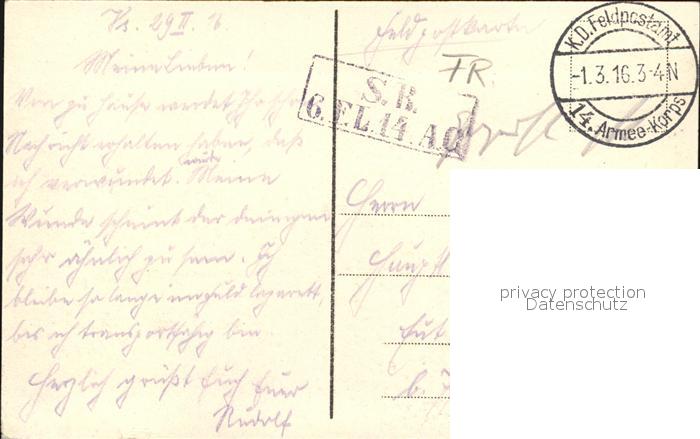 Vs. 29 II. 16
Meine Lieben!
Von zu Hause werdet Ihr schon
Nachricht erhalten haben, daß
ich verwundet wurde. Meine
Wunde scheint der deinigen
sehr ähnlich zu sein. Ich
bleibe so lange im Feldlazarett,
bis ich transportfähig bin.
Herzlich grüßt Euch Euer
Rudolf
Feldpostkarte
FR.
S. B.
6. EL. 14. A.C
K.D. Feldpostamt
-1.3.16.3-4N
14. Armee-Korps
Herrn
Hauptl
privacy protection
Datenschutz